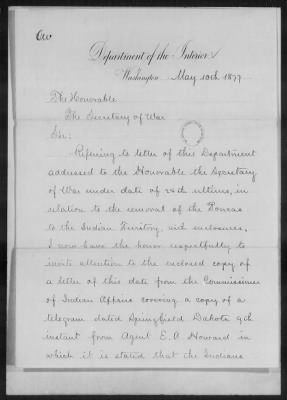 Department of the Interior,
Washington May 10th 1877
The Honorable
The Secretary of War
Sir:
Refering to letter of this Department
addressed to the Honorable the Secretary
of War under date of 28th ultimo, in
relation to the removal of the Poncas
to the Indian Territory, with enclosures,
I now have the honor respectfully to
invite attention to the enclosed copy of
a letter of this date from the Commissioner
of Indian Affairs covering a copy of a
telegram dated Springfield Dakota 9th
instant from Agent E. A. Howard in
which it is stated that the Indians